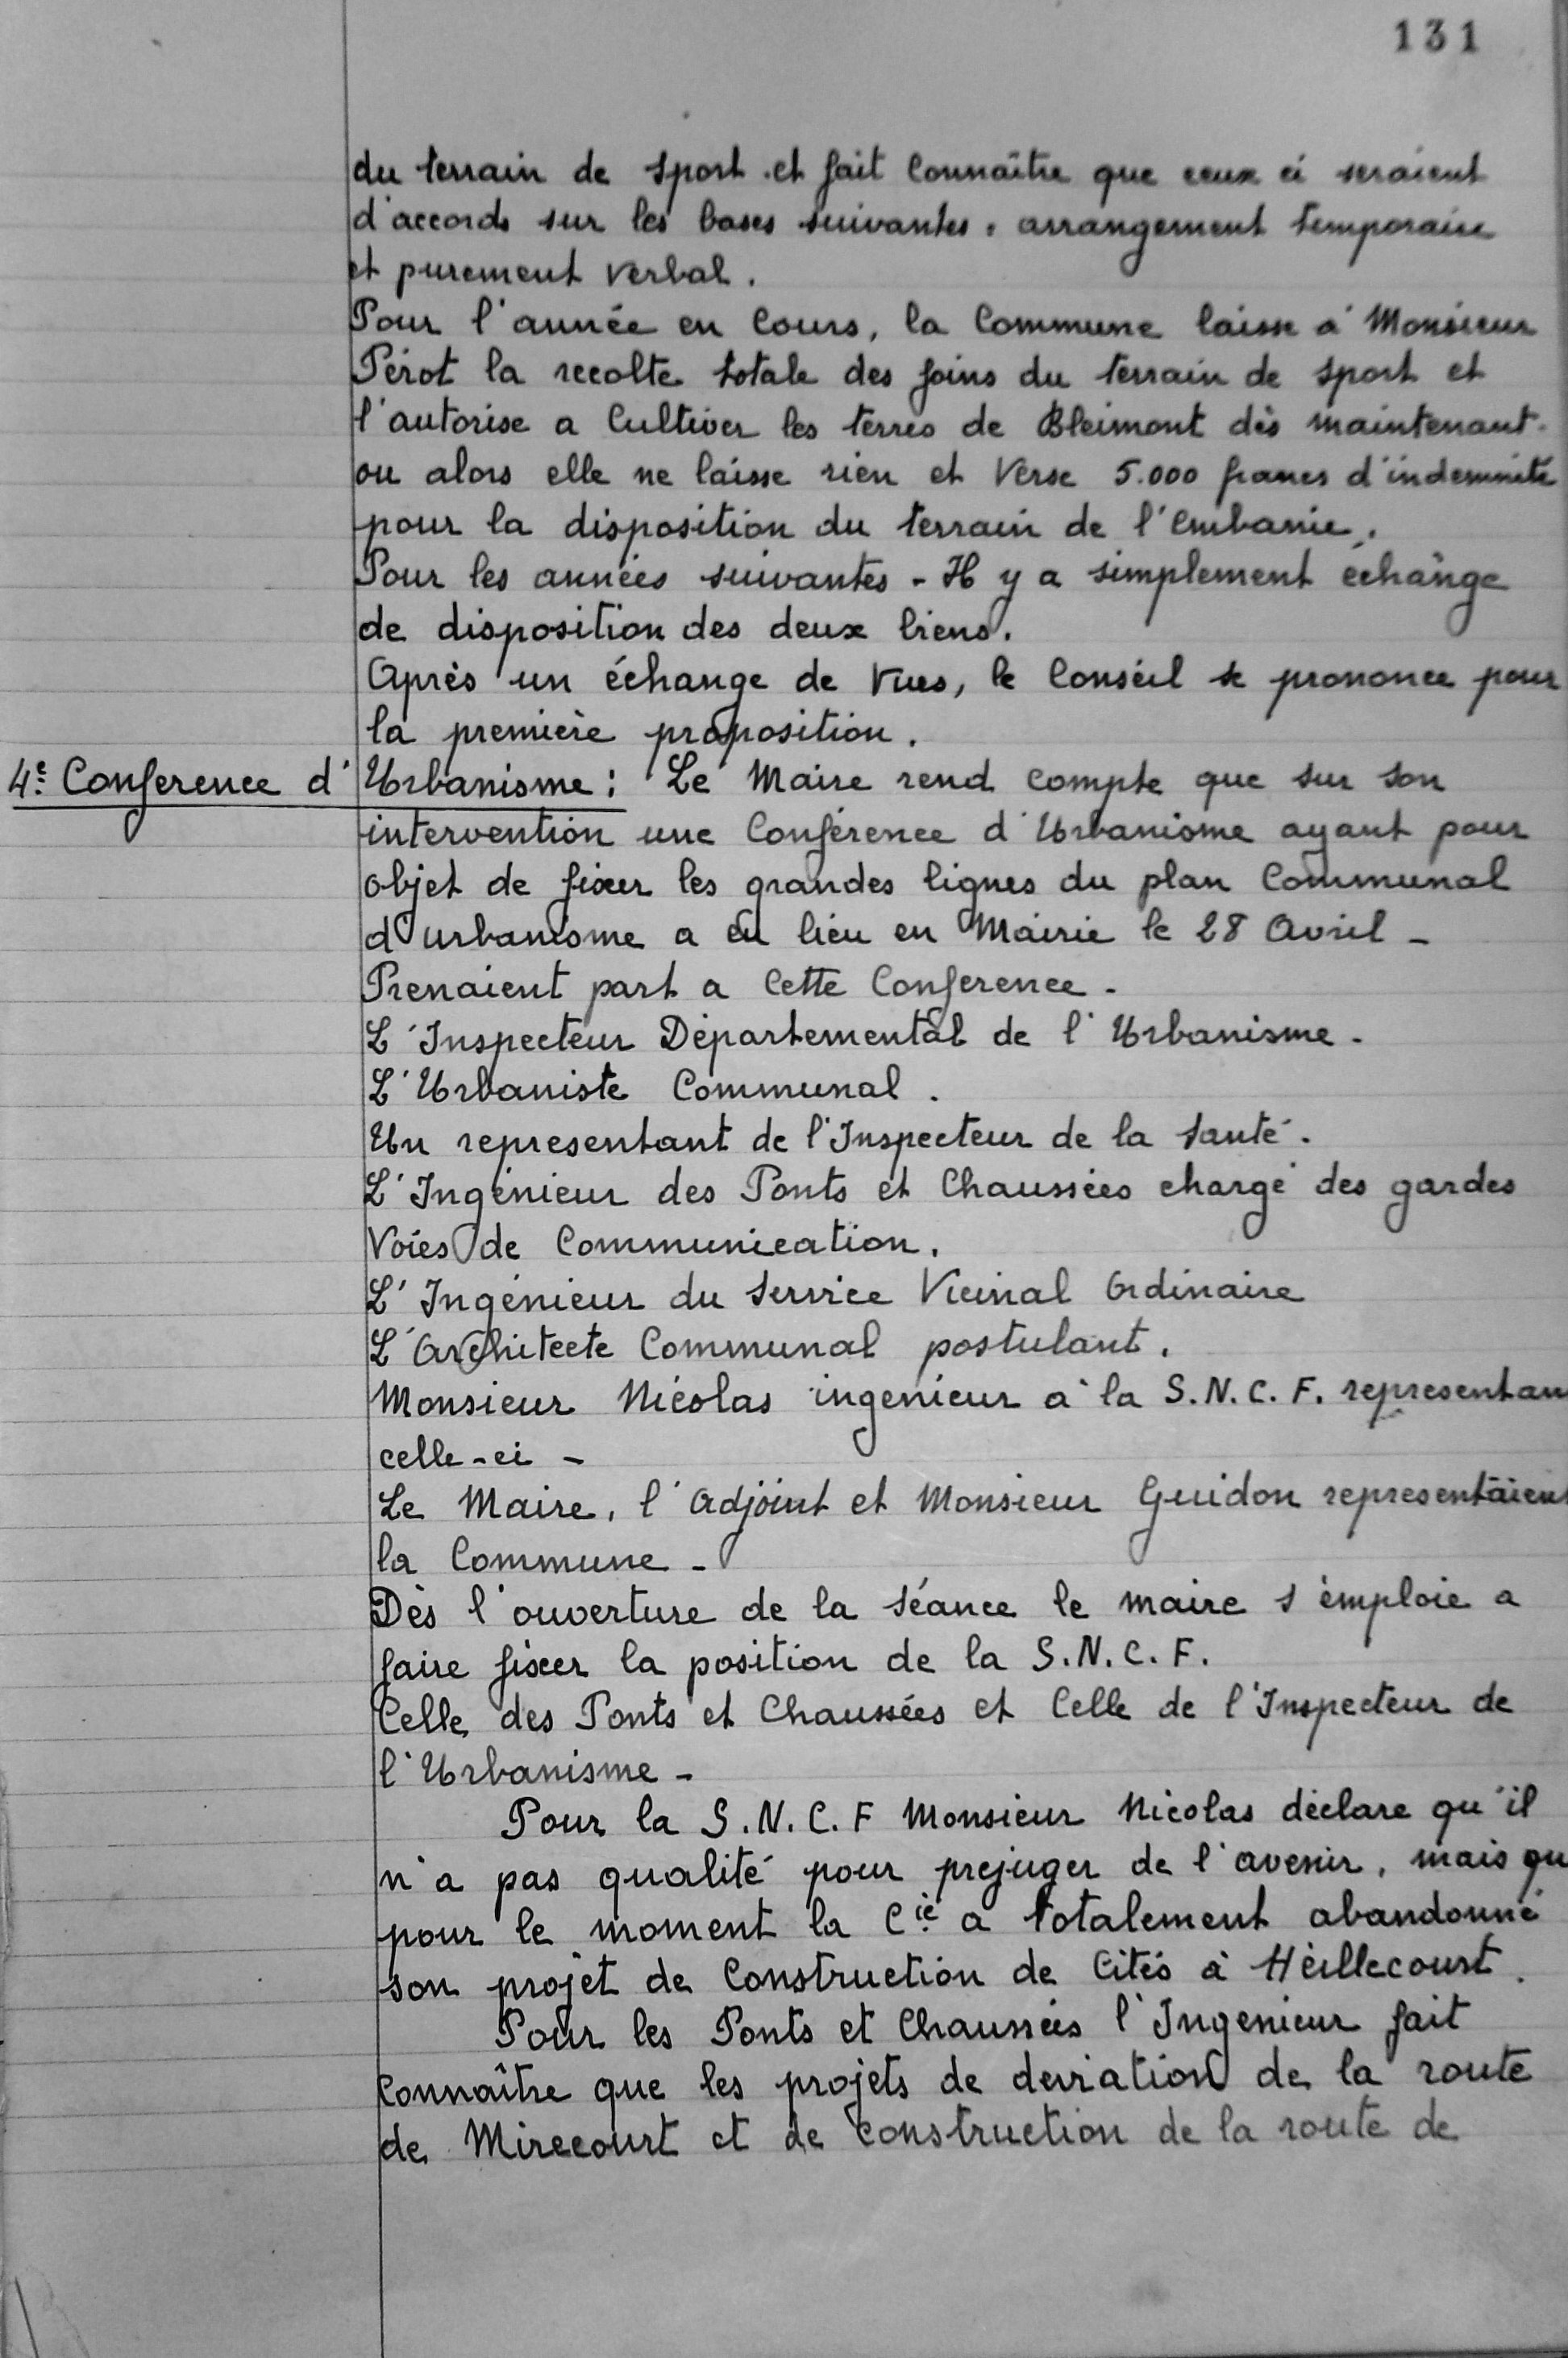 131
du terrain de sport et fait connaître que ceux ci seraient
d'accords sur les bases suivantes : arrangement temporaire
et purement verbal.
Pour l'année en cours, la Commune laisse à Monsieur
Pérot la recolte totale des foins du terrain de sport et
l'autorise a Cultiver les terres de Bleimont dès maintenant.
ou alors elle ne laisse rien et Verse 5.000 francs d'indemnité
pour la disposition du terrain de l'Embanie.
Pour les années suivantes - Il y a simplement echange
de disposition des deux biens.
Après un échange de Vues, le Conseil se prononce pour
la première proposition.
4e Conference d'Urbanisme : Le Maire rend compte que sur son
intervention une Conférence d'Urbanisme ayant pour
objet de fixer les grandes lignes du plan Communal
d'urbanisme a eu lieu en Mairie le 28 Avril -
Prenaient part a Cette Conference -
L'Inspecteur Départemental de l'Urbanisme -
L'Urbaniste Communal.
Un representant de l'Inspecteur de la Santé.
L'Ingénieur des Ponts et Chaussées chargé des gardes
Voies de Communication.
L'Ingénieur du Service Vicinal Ordinaire
L'Architecte Communal postulant.
Monsieur Nicolas ingenieur à la S.N.C.F. representan
celle-ci -
Le Maire, l'Adjoint et Monsieur Guidon representaient
la Commune -
Dès l'ouverture de la séance le maire s'emploie a
faire fixer la position de la S.N.C.F.
Celle des Ponts et Chaussées et Celle de l'Inspecteur de
l'Urbanisme -
Pour la S.N.C.F Monsieur Nicolas déclare qu'il
n'a pas qualité pour prejuger de l'avenir, mais qu
pour le moment la Cie a totalement abandonné
son projet de Construction de Cités à Heillecourt.
Pour les Ponts et Chaussées l'Ingenieur fait
Connaître que les projets de deviation de la route
de Mirecourt et de construction de la route de